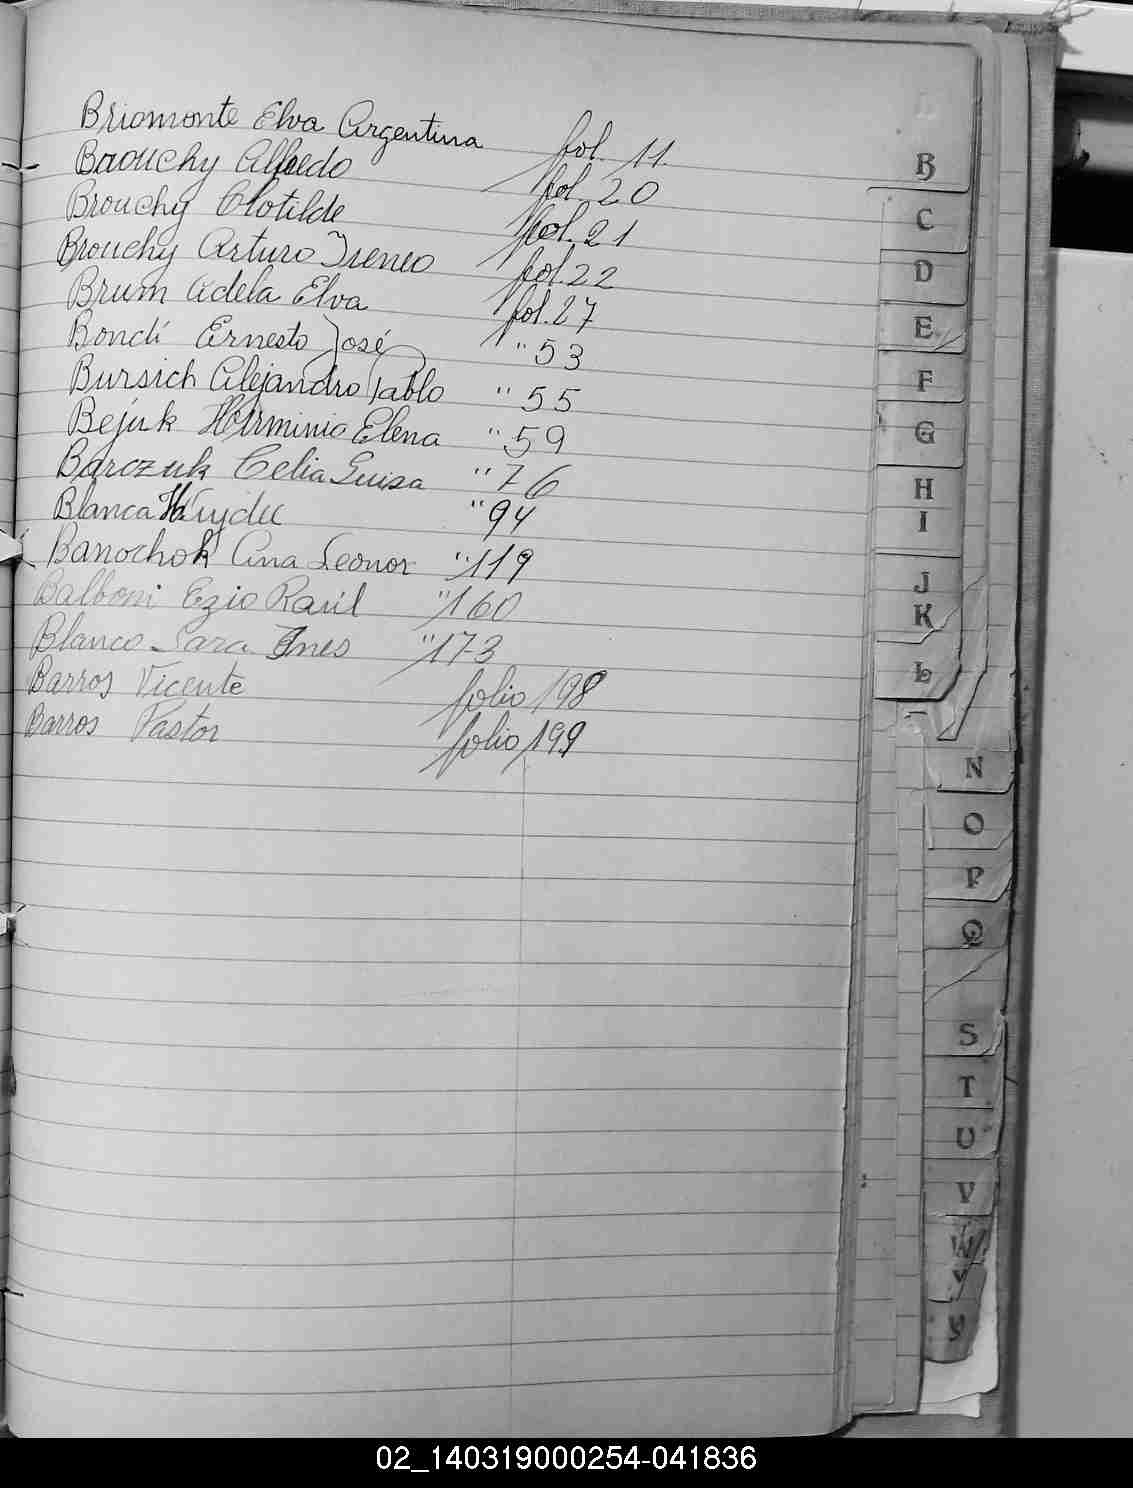 Briomonte Elva Argentina fol. 11
Brouchy Alfredo fol. 20
Brouchy Clotilde fol. 21
Brouchy Arturo Ireneo fol. 22
Brum Adela Elva fol. 27
Bondi Ernesto José " 53
Bursich Alejandro Pablo " 55
Bejuk Herminio Elena " 59
Barczuk Celia Luisa " 76
Blanca " 94
Banochok Ana Leonor " 119
Balboni Ezio Raúl " 160
Blanco Sara Ines " 173
Barros Vicente folio 198
Barros Pastor folio 199
B
C
D
E
F
G
H
I
J
K
L
N
O
P
Q
S
T
U
V
W
Y
02_140319000254-041836